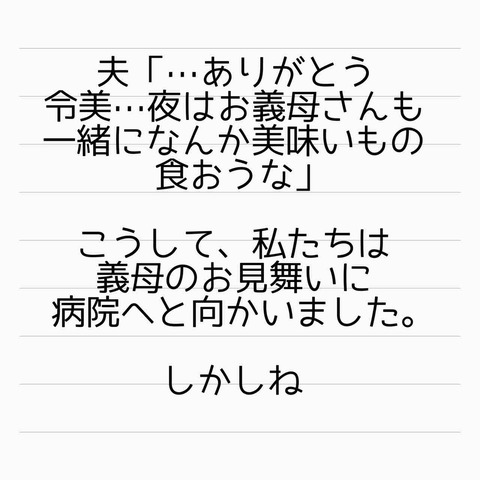 夫「…ありがとう
令美…夜はお義母さんも
一緒になんか美味いもの
食おうな」
こうして、私たちは
義母のお見舞いに
病院へと向かいました。
しかしね